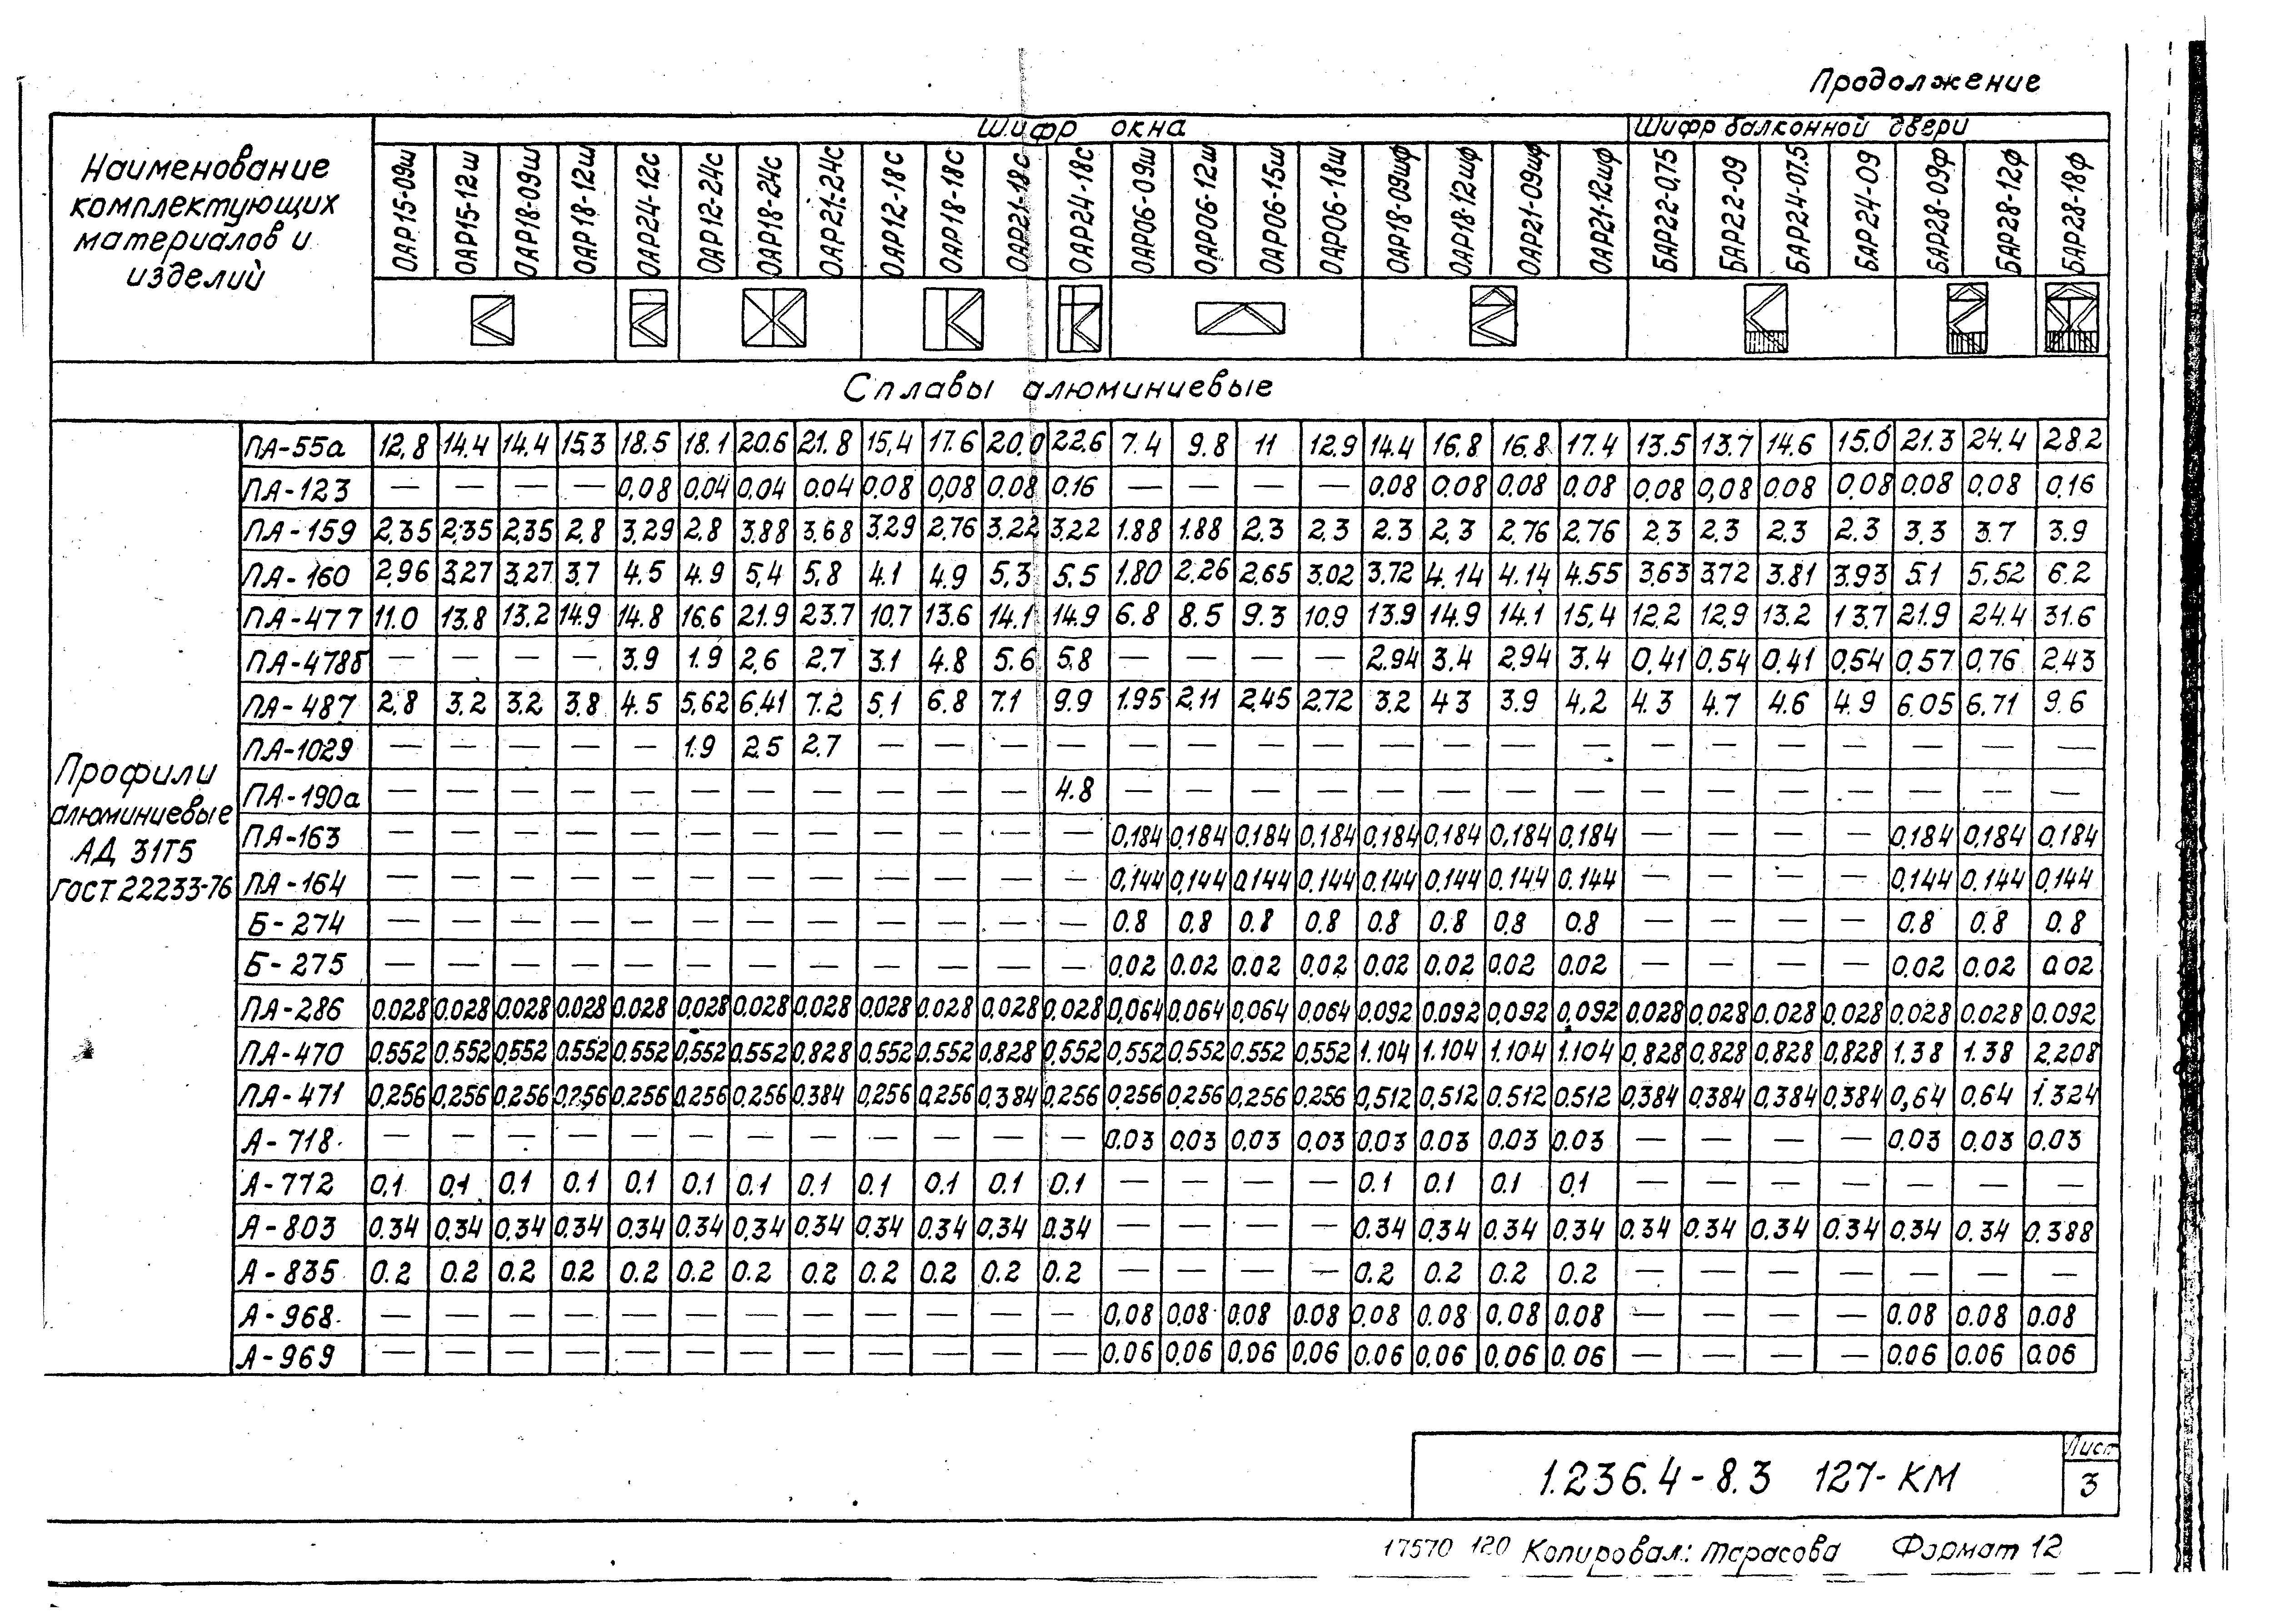 Продолжение
Наименование комплектующих материалов и изделий | Шифр окна | Шифр балконной двери
ОАР15-09ш ОАР15-12ш ОАР18-09ш ОАР18-12ш ОАР24-12с ОАР12-24с ОАР18-24с ОАР21-24с ОАР12-18с ОАР18-18с ОАР21-18с ОАР24-18с ОАР06-09ш ОАР06-12ш ОАР06-15ш ОАР06-18ш ОАР18-09шф ОАР18-12шф ОАР21-09шф ОАР21-12шф БАР22-0,75 БАР22-09 БАР24-07.5 БАР24-09 БАР28-09ф БАР28-12ф БАР28-18ф
Сплавы алюминиевые
Профили
алюминиевые
АД 31Т5
ГОСТ 22233-76
ПА-55а 12,8 14.4 14.4 15,3 18.5 18.1 20.6 21.8 15,4 17.6 20.0 22.6 7.4 9.8 11 12.9 14.4 16.8 16.8 17.4 13.5 13.7 14.6 15.0 21.3 24.4 28.2
ПА-123 — — — — 0,08 0,04 0,04 0,04 0,08 0,08 0.08 0.16 — — — — 0.08 0.08 0.08 0.08 0,08 0,08 0.08 0,08 0.08 0,08 0.16
ПА-159 2,35 2,35 2,35 2,8 3,29 2,8 3,88 3,68 3,29 2,76 3,22 3,22 1.88 1.88 2.3 2,3 2.3 2,3 2,76 2,76 2,3 2.3 2.3 2.3 3.3 3.7 3.9
ПА-160 2,96 3,27 3,27 3,7 4.5 4.9 5,4 5,8 4.1 4.9 5,3 5.5 1.80 2.26 2,65 3,02 3,72 4.14 4.14 4.55 3,63 3,72 3.81 3.93 5.1 5,52 6.2
ПА-477 11.0 13.8 13.2 14.9 14.8 16.6 21.9 23.7 10,7 13.6 14.1 14.9 6.8 8.5 9.3 10,9 13.9 14.9 14.1 15,4 12.2 12.9 13.2 13.7 21.9 24.4 31.6
ПА-478б — — — — 3.9 1.9 2,6 2,7 3,1 4.8 5.6 5,8 — — — — 2.94 3.4 2,94 3.4 0,41 0,54 0,41 0,54 0,57 0,76 2,43
ПА-487 2,8 3,2 3,2 3,8 4.5 5,62 6,41 7.2 5,1 6.8 7.1 9.9 1.95 2,11 2,45 2,72 3.2 4.3 3.9 4,2 4.3 4.7 4.6 4.9 6.05 6,71 9.6
ПА-1029 — — — — — 1.9 2.5 2.7 — — — — — — — — — — — — — — — — — — —
ПА-190а — — — — — — — — — — — 4.8 — — — — — — — — — — — — — — —
ПА-163 — — — — — — — — — — — — 0,184 0,184 0,184 0,184 0,184 0,184 0,184 0,184 — — — — 0,184 0,184 0,184
ПА-164 — — — — — — — — — — — — 0,144 0,144 0.144 0.144 0.144 0.144 0.144 0.144 — — — — 0,144 0.144 0,144
Б-274 — — — — — — — — — — — — 0.8 0.8 0.8 0.8 0.8 0.8 0.8 0.8 — — — — 0.8 0.8 0.8
Б-275 — — — — — — — — — — — — 0.02 0.02 0.02 0.02 0.02 0.02 0.02 0.02 — — — — 0.02 0.02 0.02
ПА-286 0.028 0.028 0.028 0.028 0.028 0,028 0.028 0,028 0,028 0.028 0.028 0.028 0,064 0.064 0,064 0.064 0.092 0.092 0,092 0,092 0.028 0.028 0.028 0.028 0.028 0.028 0.092
ПА-470 0.552 0.552 0,552 0.552 0.552 0,552 0.552 0,828 0,552 0.552 0.828 0.552 0,552 0.552 0.552 0,552 1.104 1.104 1.104 1.104 0,828 0,828 0,828 0,828 1.38 1.38 2,208
ПА-471 0,256 0,256 0,256 0,256 0.256 0.256 0,256 0,384 0,256 0,256 0,384 0,256 0,256 0,256 0,256 0,256 0,512 0,512 0.512 0.512 0,384 0,384 0,384 0,384 0,64 0,64 1.324
А-718 — — — — — — — — — — — — 0.03 0,03 0.03 0.03 0.03 0.03 0.03 0.03 — — — — 0.03 0.03 0.03
А-772 0,1 0,1 0.1 0.1 0.1 0.1 0.1 0.1 0.1 0.1 0.1 0.1 — — — — 0.1 0.1 0.1 0,1 — — — — — — —
А-803 0.34 0,34 0,34 0,34 0,34 0.34 0,34 0,34 0,34 0.34 0,34 0.34 — — — — 0.34 0,34 0.34 0,34 0.34 0.34 0.34 0.34 0.34 0.34 0.388
А-835 0.2 0.2 0.2 0.2 0.2 0.2 0.2 0.2 0.2 0.2 0.2 0.2 — — — — 0.2 0.2 0.2 0.2 — — — — — — —
А-968 — — — — — — — — — — — — 0,08 0.08 0.08 0.08 0.08 0.08 0.08 0.08 — — — — 0.08 0.08 0.08
А-969 — — — — — — — — — — — — 0.06 0,06 0,06 0,06 0.06 0,06 0,06 0.06 — — — — 0.06 0.06 0.06
1.236.4-8.3 127-КМ
Лист
3
17570 120 Копировал: Тарасова Формат 12